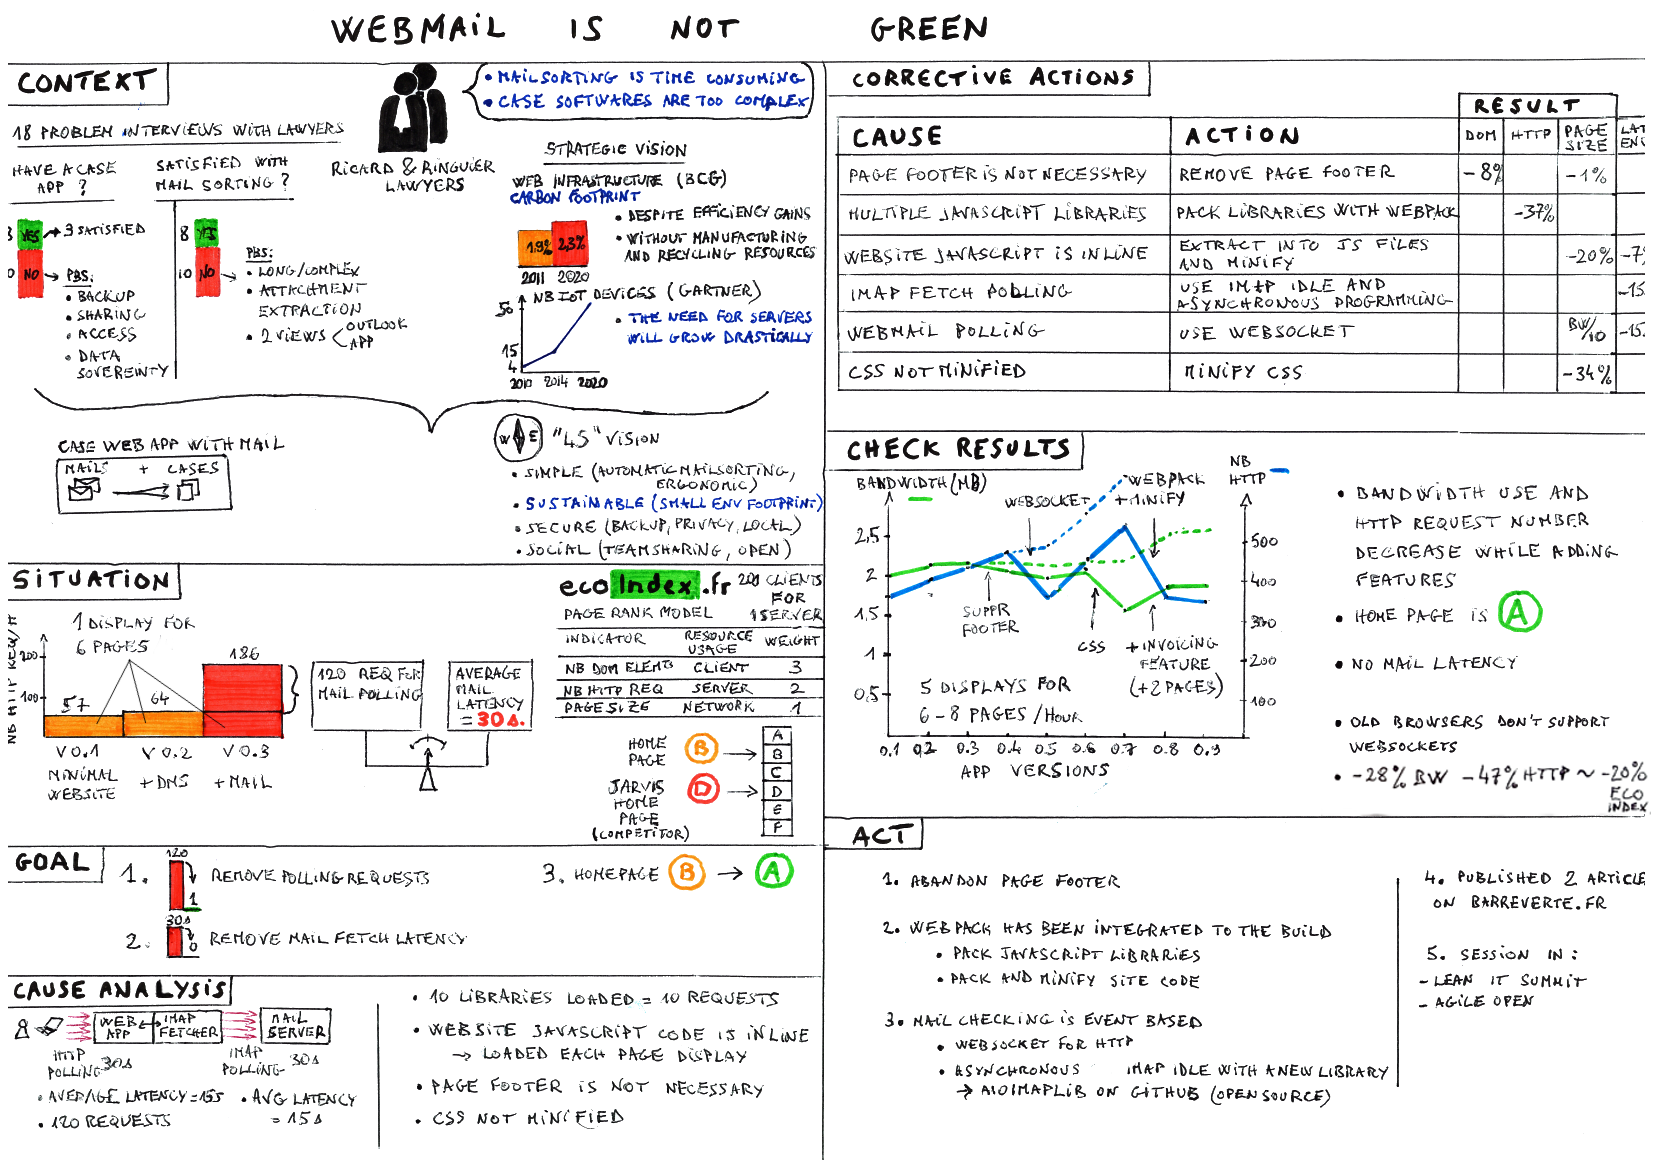 WEBMAIL IS NOT GREEN
CONTEXT
18 PROBLEM INTERVIEWS WITH LAWYERS
HAVE A CASE
APP ?
SATISFIED WITH
MAIL SORTING ?
YES
3 SATISFIED
NO
PBS:
• BACKUP
• SHARING
• ACCESS
• DATA
SOVEREINTY
8 YES
10 NO
PBS:
• LONG/COMPLEX
• ATTACHMENT
EXTRACTION
• 2 VIEWS < OUTLOOK
APP
RICARD & RINGUIER
LAWYERS
• MAILSORTING IS TIME CONSUMING
• CASE SOFTWARES ARE TOO COMPLEX
STRATEGIC VISION
WEB INFRASTRUCTURE (BCG)
CARBON FOOTPRINT
1.9% 2.3%
2011 2020
• DESPITE EFFICIENCY GAINS
• WITHOUT MANUFACTURING
AND RECYCLING RESOURCES
NB IOT DEVICES (GARTNER)
50
15
4
2010 2014 2020
• THE NEED FOR SERVERS
WILL GROW DRASTICALLY
CASE WEB APP WITH MAIL
MAILS + CASES
W E
"4S" VISION
• SIMPLE (AUTOMATIC MAILSORTING,
ERGONOMIC)
• SUSTAINABLE (SMALL ENV FOOTPRINT)
• SECURE (BACKUP, PRIVACY, LOCAL)
• SOCIAL (TEAMSHARING, OPEN)
SITUATION
NB HTTP REQ/H
200
100
1 DISPLAY FOR
6 PAGES
57
64
186
V0.1 V0.2 V0.3
MINIMAL
WEBSITE
+ DMS
+ MAIL
120 REQ FOR
MAIL POLLING
AVERAGE
MAIL
LATENCY
= 30s.
ecoIndex.fr
200 CLIENTS
FOR
1 SERVER
PAGE RANK MODEL
INDICATOR RESOURCE USAGE WEIGHT
NB DOM ELEMTS CLIENT 3
NB HTTP REQ SERVER 2
PAGE SIZE NETWORK 1
HOME
PAGE
B
JARVIS
HOME
PAGE
(COMPETITOR)
D
A
B
C
D
E
F
GOAL
1. 120 1 REMOVE POLLING REQUESTS
2. 30s 0 REMOVE MAIL FETCH LATENCY
3. HOMEPAGE B → A
CAUSE ANALYSIS
WEB
APP
IMAP
FETCHER
MAIL
SERVER
HTTP
POLLING 30s
IMAP
POLLING 30s
• AVERAGE LATENCY = 15s
• 120 REQUESTS
• AVG LATENCY
= 15s
• 10 LIBRARIES LOADED = 10 REQUESTS
• WEBSITE JAVASCRIPT CODE IS INLINE
→ LOADED EACH PAGE DISPLAY
• PAGE FOOTER IS NOT NECESSARY
• CSS NOT MINIFIED
CORRECTIVE ACTIONS
RESULT
CAUSE ACTION DOM HTTP PAGE SIZE
PAGE FOOTER IS NOT NECESSARY REMOVE PAGE FOOTER -8% -1%
MULTIPLE JAVASCRIPT LIBRARIES PACK LIBRARIES WITH WEBPACK -37%
WEBSITE JAVASCRIPT IS INLINE EXTRACT INTO JS FILES AND MINIFY -20%
IMAP FETCH POLLING USE IMAP IDLE AND ASYNCHRONOUS PROGRAMMING
WEBMAIL POLLING USE WEBSOCKET BW/10
CSS NOT MINIFIED MINIFY CSS -34%
CHECK RESULTS
BANDWIDTH (MB)
NB
HTTP
2,5
2
1,5
1
0,5
500
400
300
200
100
WEBSOCKET
WEBPACK
+ MINIFY
SUPPR
FOOTER
CSS
+ INVOICING
FEATURE
(+2 PAGES)
5 DISPLAYS FOR
6-8 PAGES / HOUR
0.1 0.2 0.3 0.4 0.5 0.6 0.7 0.8 0.9
APP VERSIONS
• BANDWIDTH USE AND
HTTP REQUEST NUMBER
DECREASE WHILE ADDING
FEATURES
• HOME PAGE IS A
• NO MAIL LATENCY
• OLD BROWSERS DON'T SUPPORT
WEBSOCKETS
• -28% BW -47% HTTP ~ -20%
ECO
INDEX
ACT
1. ABANDON PAGE FOOTER
2. WEBPACK HAS BEEN INTEGRATED TO THE BUILD
• PACK JAVASCRIPT LIBRARIES
• PACK AND MINIFY SITE CODE
3. MAIL CHECKING IS EVENT BASED
• WEBSOCKET FOR HTTP
• ASYNCHRONOUS IMAP IDLE WITH A NEW LIBRARY
→ AIOIMAPLIB ON GITHUB (OPEN SOURCE)
4. PUBLISHED 2 ARTICLE
ON BARREVERTE.FR
5. SESSION IN :
- LEAN IT SUMMIT
- AGILE OPEN